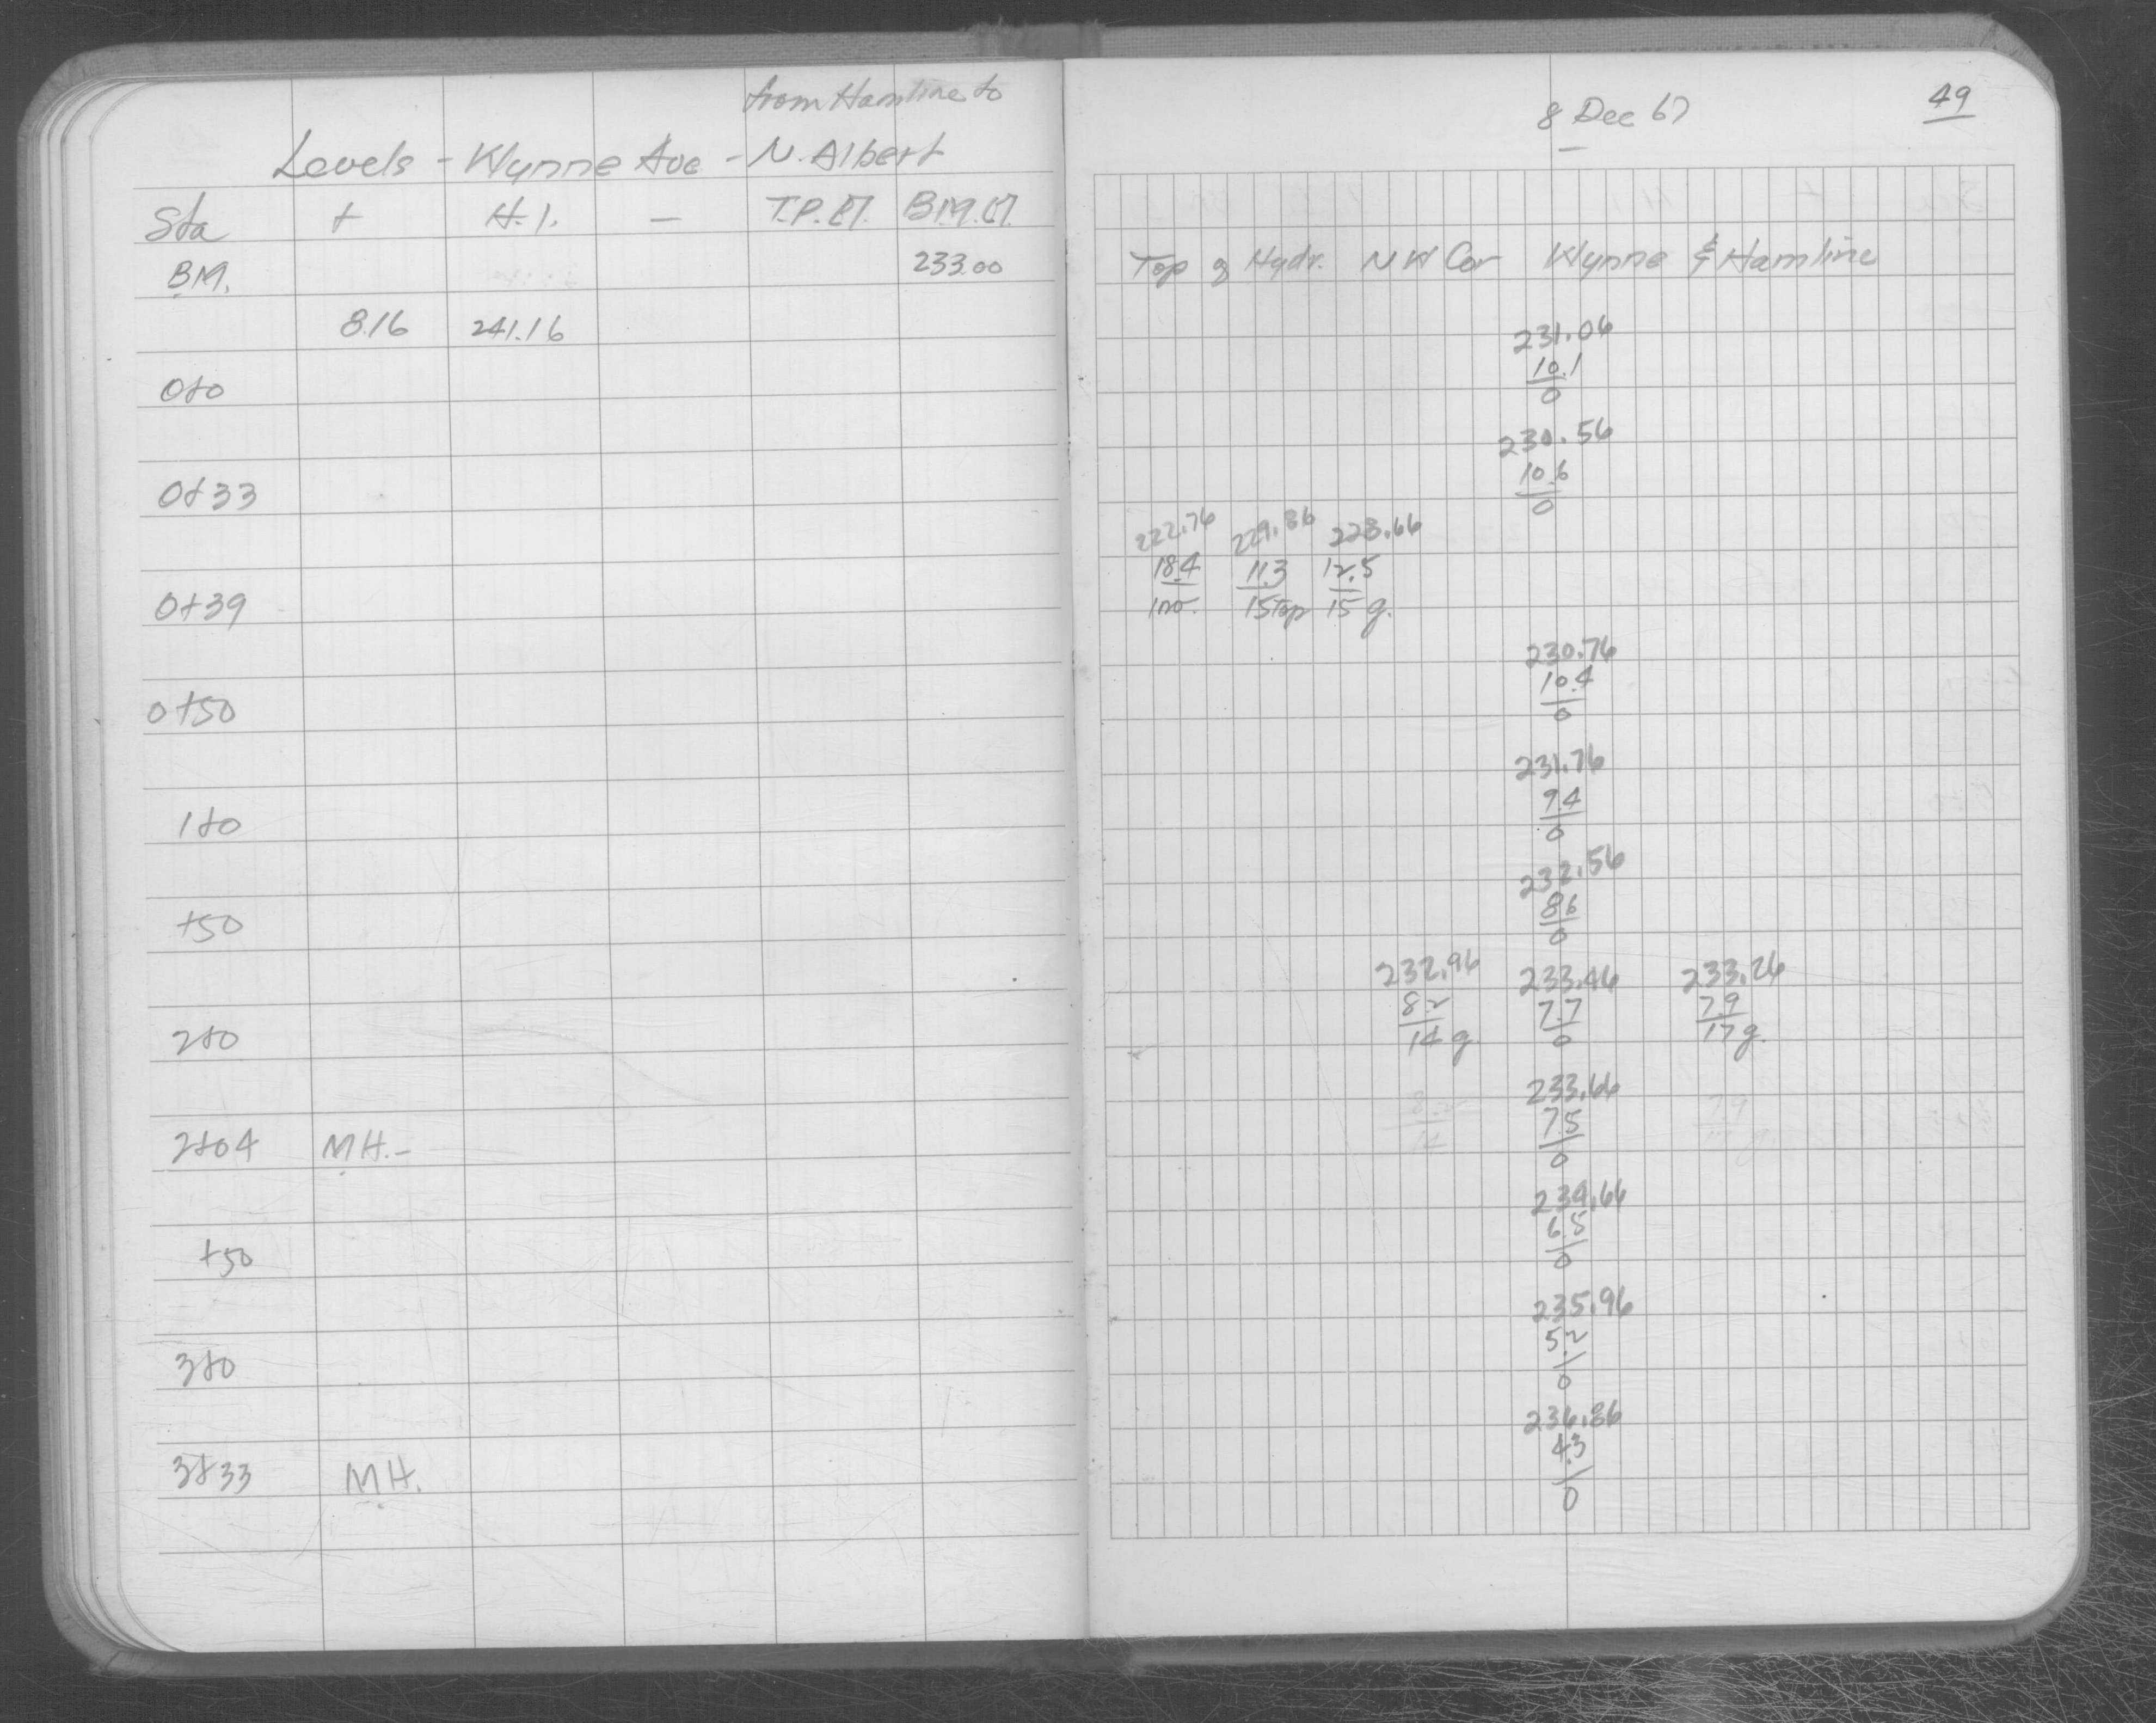 from Hamline to
Levels - Wynne Ave - N. Albert
Sta + H.I. - T.P. El. B.M. El.
B.M. 233.00
8.16 241.16
0+0
0+33
0+39
0+50
1+0
+50
2+0
2+04 M.H.-
+50
3+0
3+33 M.H.
8 Dec 67 49
Top of Hydr. N W Cor Wynne & Hamline
231.06
10.1
0
230.56
10.6
0
222.76 229.86 228.66
18.4 11.3 12.5
inv. 15 Top 15 g.
230.76
10.4
0
231.76
9.4
0
232.56
8.6
0
232.96 233.46 233.26
8.2 7.7 7.9
14 g 0 17 g.
233.66
7.5
0
234.66
6.5
0
235.96
5.2
0
236.86
4.3
0